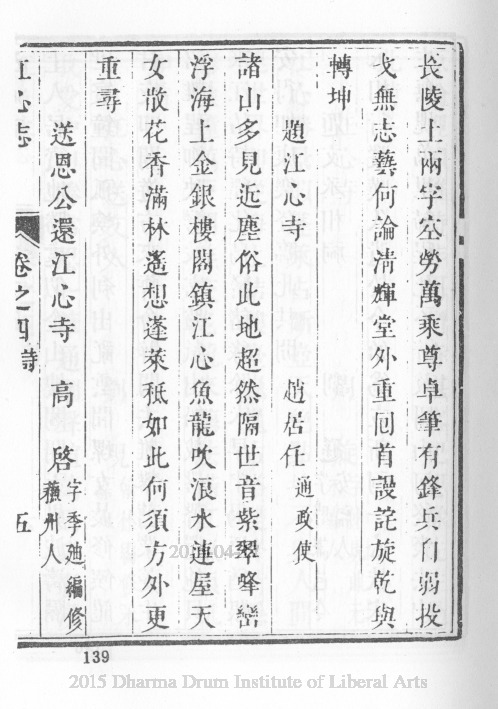 長陵十兩字空勞萬乘尊卓筆有鋒兵自弱投
戈無志藝何論淸輝堂外重囘首謾詫旋乾與
轉坤
題江心寺　趙居任通政使
諸山多見近塵俗此地超然隔世音紫翠峰巒
浮海上金銀樓閣鎮江心魚龍吹浪水連屋天
女散花香滿林遙想蓬萊秪如此何須方外更
重尋
送恩公還江心寺　高啓字季廸編修蘓州人
江心志　卷之四詩　五
139
2015 Dharma Drum Institute of Liberal Arts